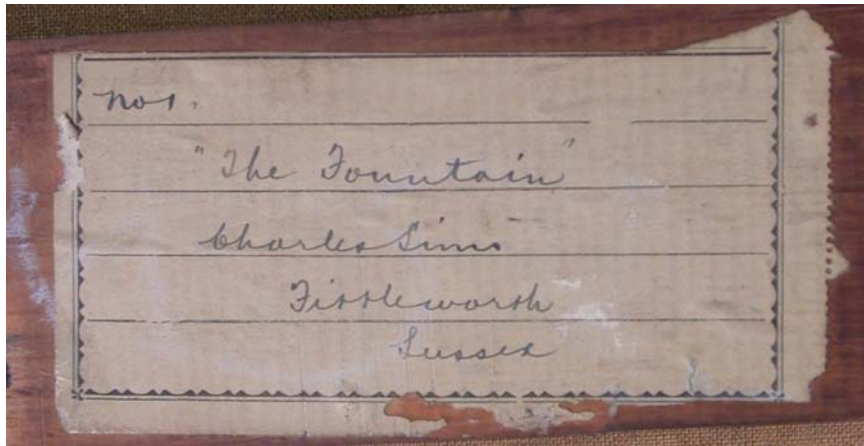 No 1.
"The Fountain"
Charles Sims
Fittleworth
Sussex